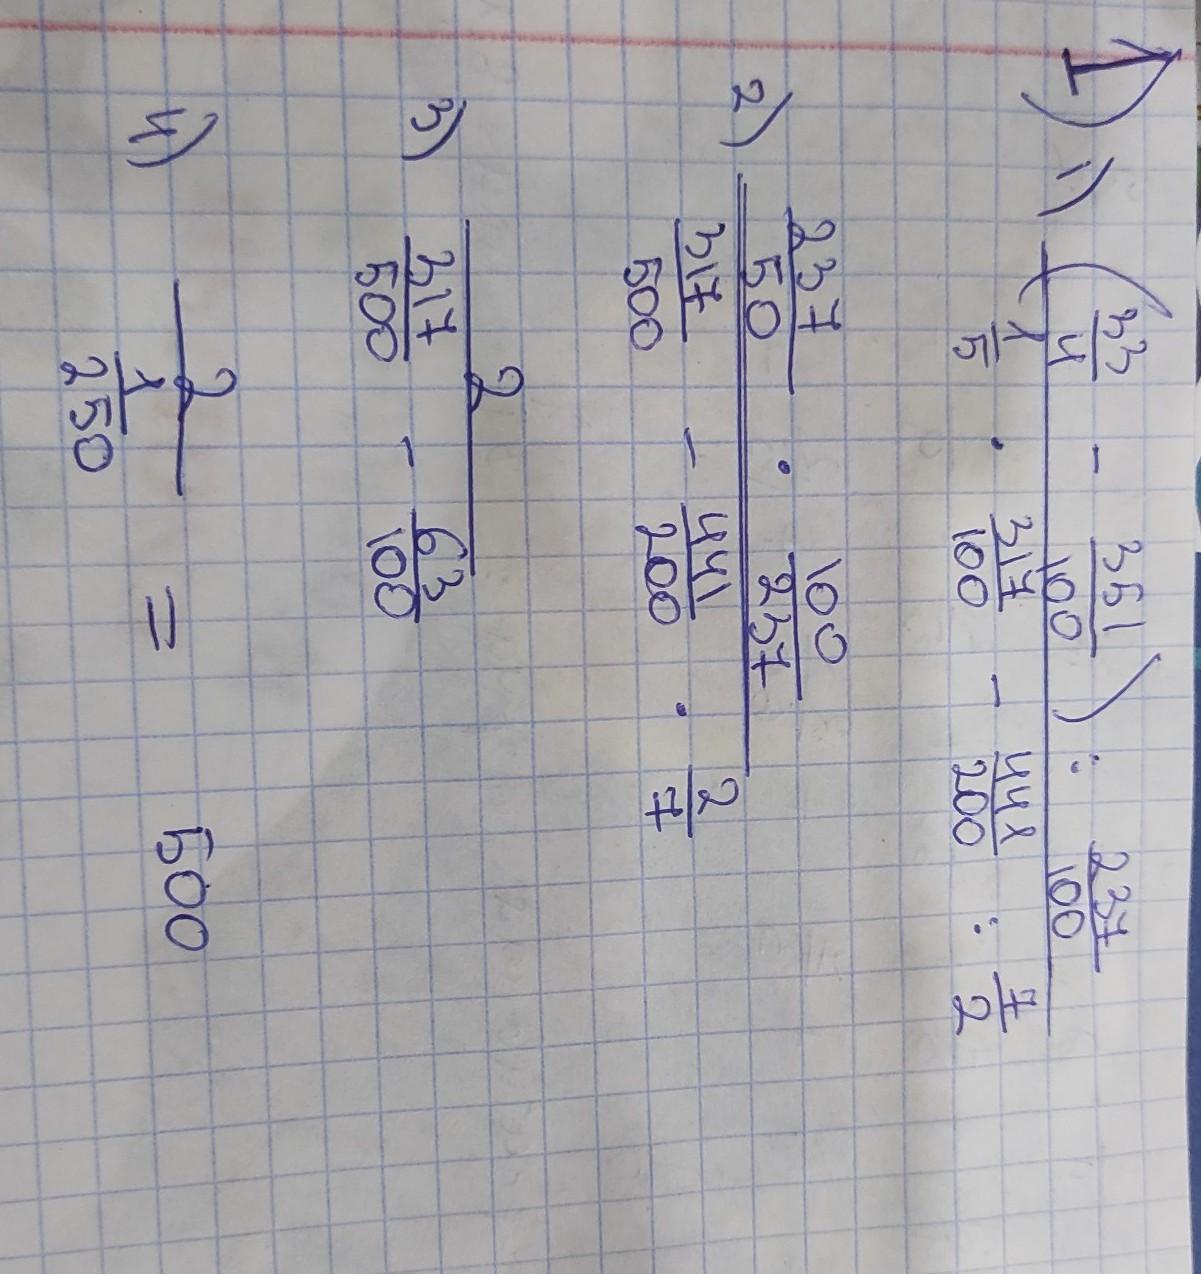 1) 1) (33/4 - 351/100) : 237/100
1/5 · 317/100 - 441/200 : 7/2
2) 237/50 · 100/237
317/500 - 441/200 · 2/7
3) 2
317/500 - 63/100
4) 2
1/250 = 500